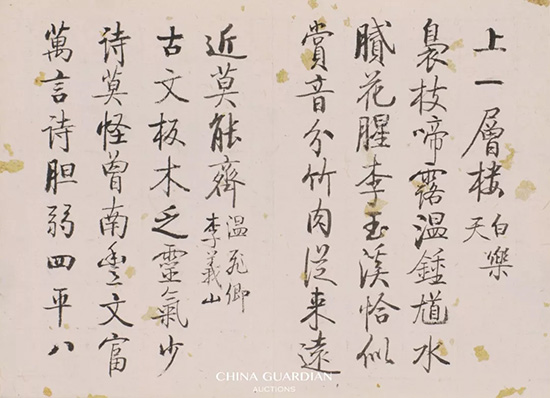 上一層楼 白樂天
裊枝啼露温鍾馗水
膩花腥李玉溪恰似
賞音分竹肉從来遠
近莫能齊 温飛卿 李義山
古文板木乏靈氣少
诗莫怪曾南豐文富
萬言诗胆弱四平八
CHINA GUARDIAN
AUCTIONS